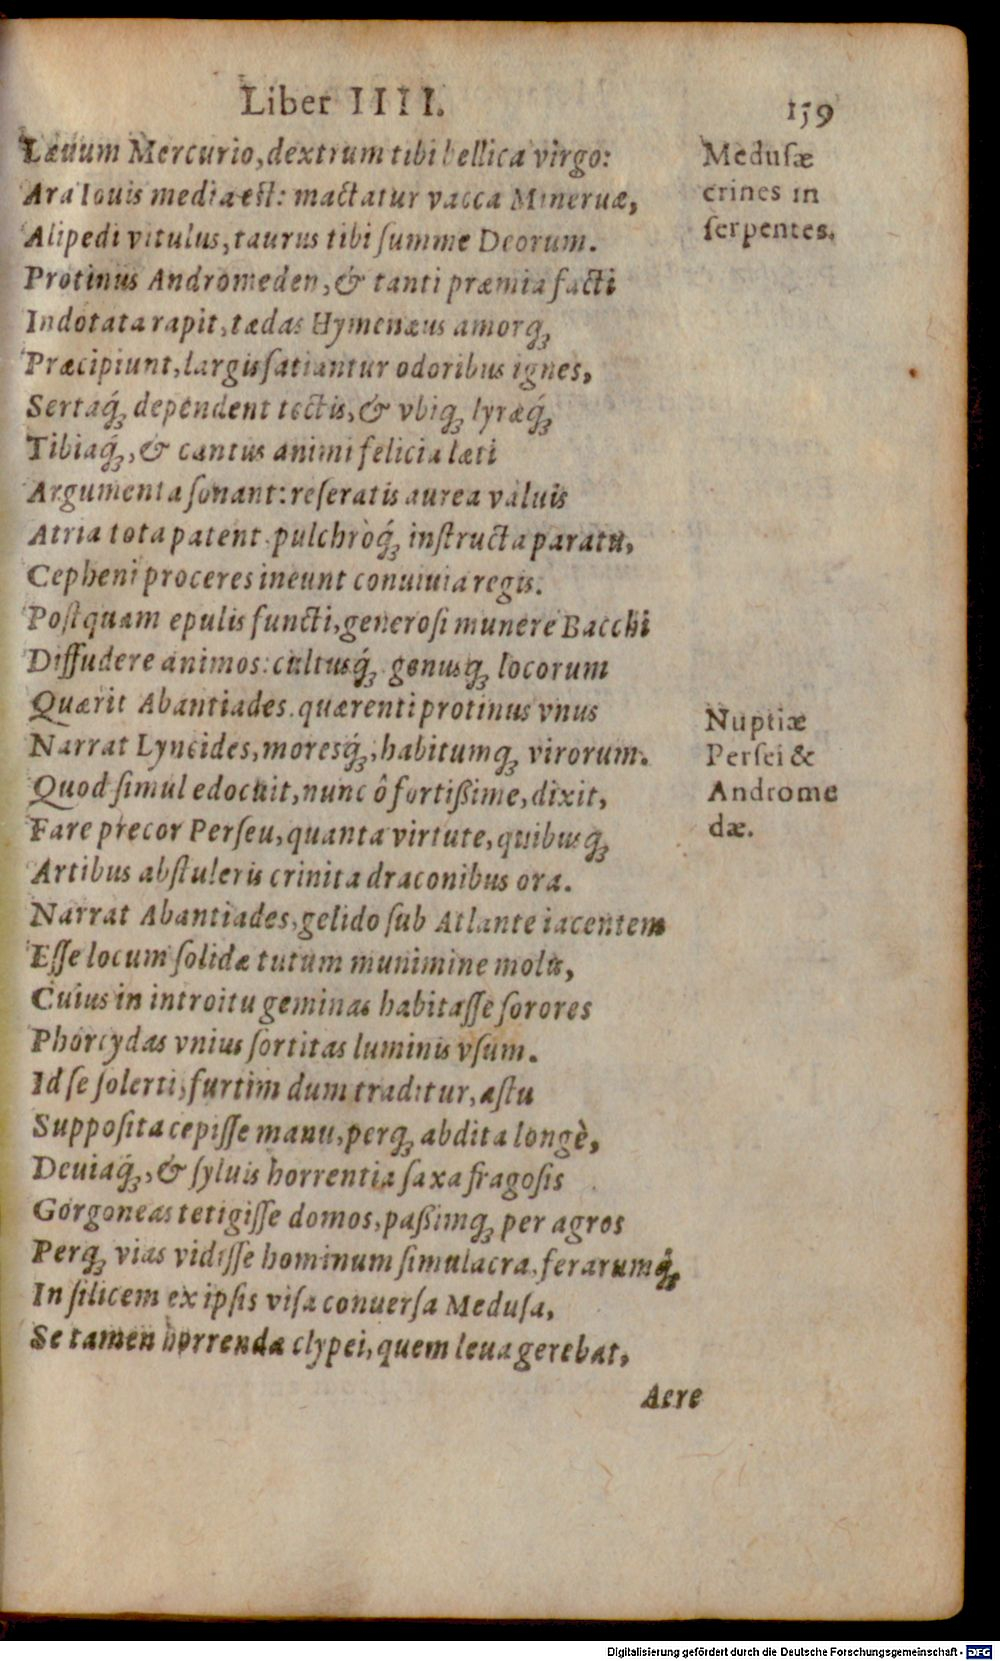 Liber IIII. 159
Læuum Mercurio, dextrum tibi bellica virgo:
Ara Iouis media est: mactatur vacca Mineruæ,
Alipedi vitulus, taurus tibi ſumme Deorum.
Protinus Andromeden, & tanti præmia facti
Indotata rapit, tædas Hymenæus amorq́ꝫ
Præcipiunt, largis ſatiantur odoribus ignes,
Sertaq́ꝫ dependent tectis, & vbiqꝫ lyræq́ꝫ
Tibiaq́ꝫ, & cantus animi felicia læti
Argumenta ſonant: reſeratis aurea valuis
Atria tota patent. pulchròq́ꝫ inſtructa paratu,
Cepheni proceres ineunt conuiuia regis.
Poſtquam epulis functi, generoſi munere Bacchi
Diffudere animos: cultusq́ꝫ genusqꝫ locorum
Quærit Abantiades. quærenti protinus vnus
Narrat Lyncides, moresq́ꝫ, habitumqꝫ virorum.
Quod ſimul edocuit, nunc ô fortißime, dixit,
Fare precor Perſeu, quanta virtute, quibusqꝫ
Artibus abſtuleris crinita draconibus ora.
Narrat Abantiades, gelido ſub Atlante iacentem
Eſſe locum ſolidæ tutum munimine molis,
Cuius in introitu geminas habitaſſe ſorores
Phorcydas vnius ſortitas luminis vſum.
Id ſe ſolerti, furtim dum traditur, aſtu
Suppoſita cepiſſe manu, perqꝫ abdita longè,
Deuiaq́ꝫ, & ſyluis horrentia ſaxa fragoſis
Gorgoneas tetigiſſe domos, paßimqꝫ per agros
Perqꝫ vias vidiſſe hominum ſimulacra, ferarumq́ꝫ
In ſilicem ex ipſis viſa conuerſa Meduſa,
Se tamen horrendæ clypei, quem leua gerebat,
Aere
Meduſæ
crines in
ſerpentes.
Nuptiæ
Perſei &
Androme
dæ.
Digitalisierung gefördert durch die Deutsche Forschungsgemeinschaft - DFG